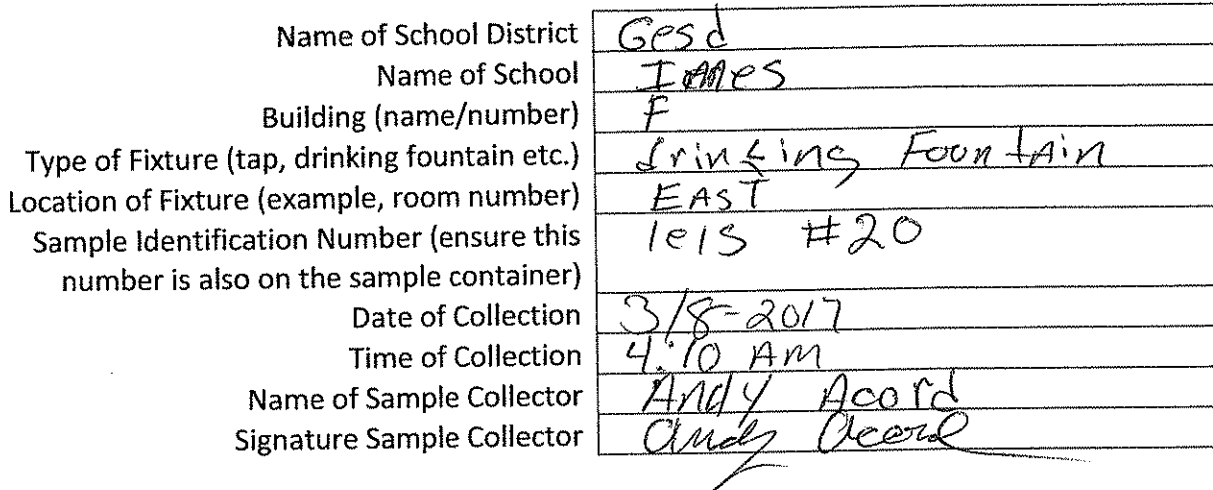 Name of School District Gesd
Name of School Imes
Building (name/number) F
Type of Fixture (tap, drinking fountain etc.) drinking Fountain
Location of Fixture (example, room number) EAST
Sample Identification Number (ensure this #20
number is also on the sample container)
Date of Collection 3/8-2017
Time of Collection 4:10 AM
Name of Sample Collector Andy Acord
Signature Sample Collector Andy Acord